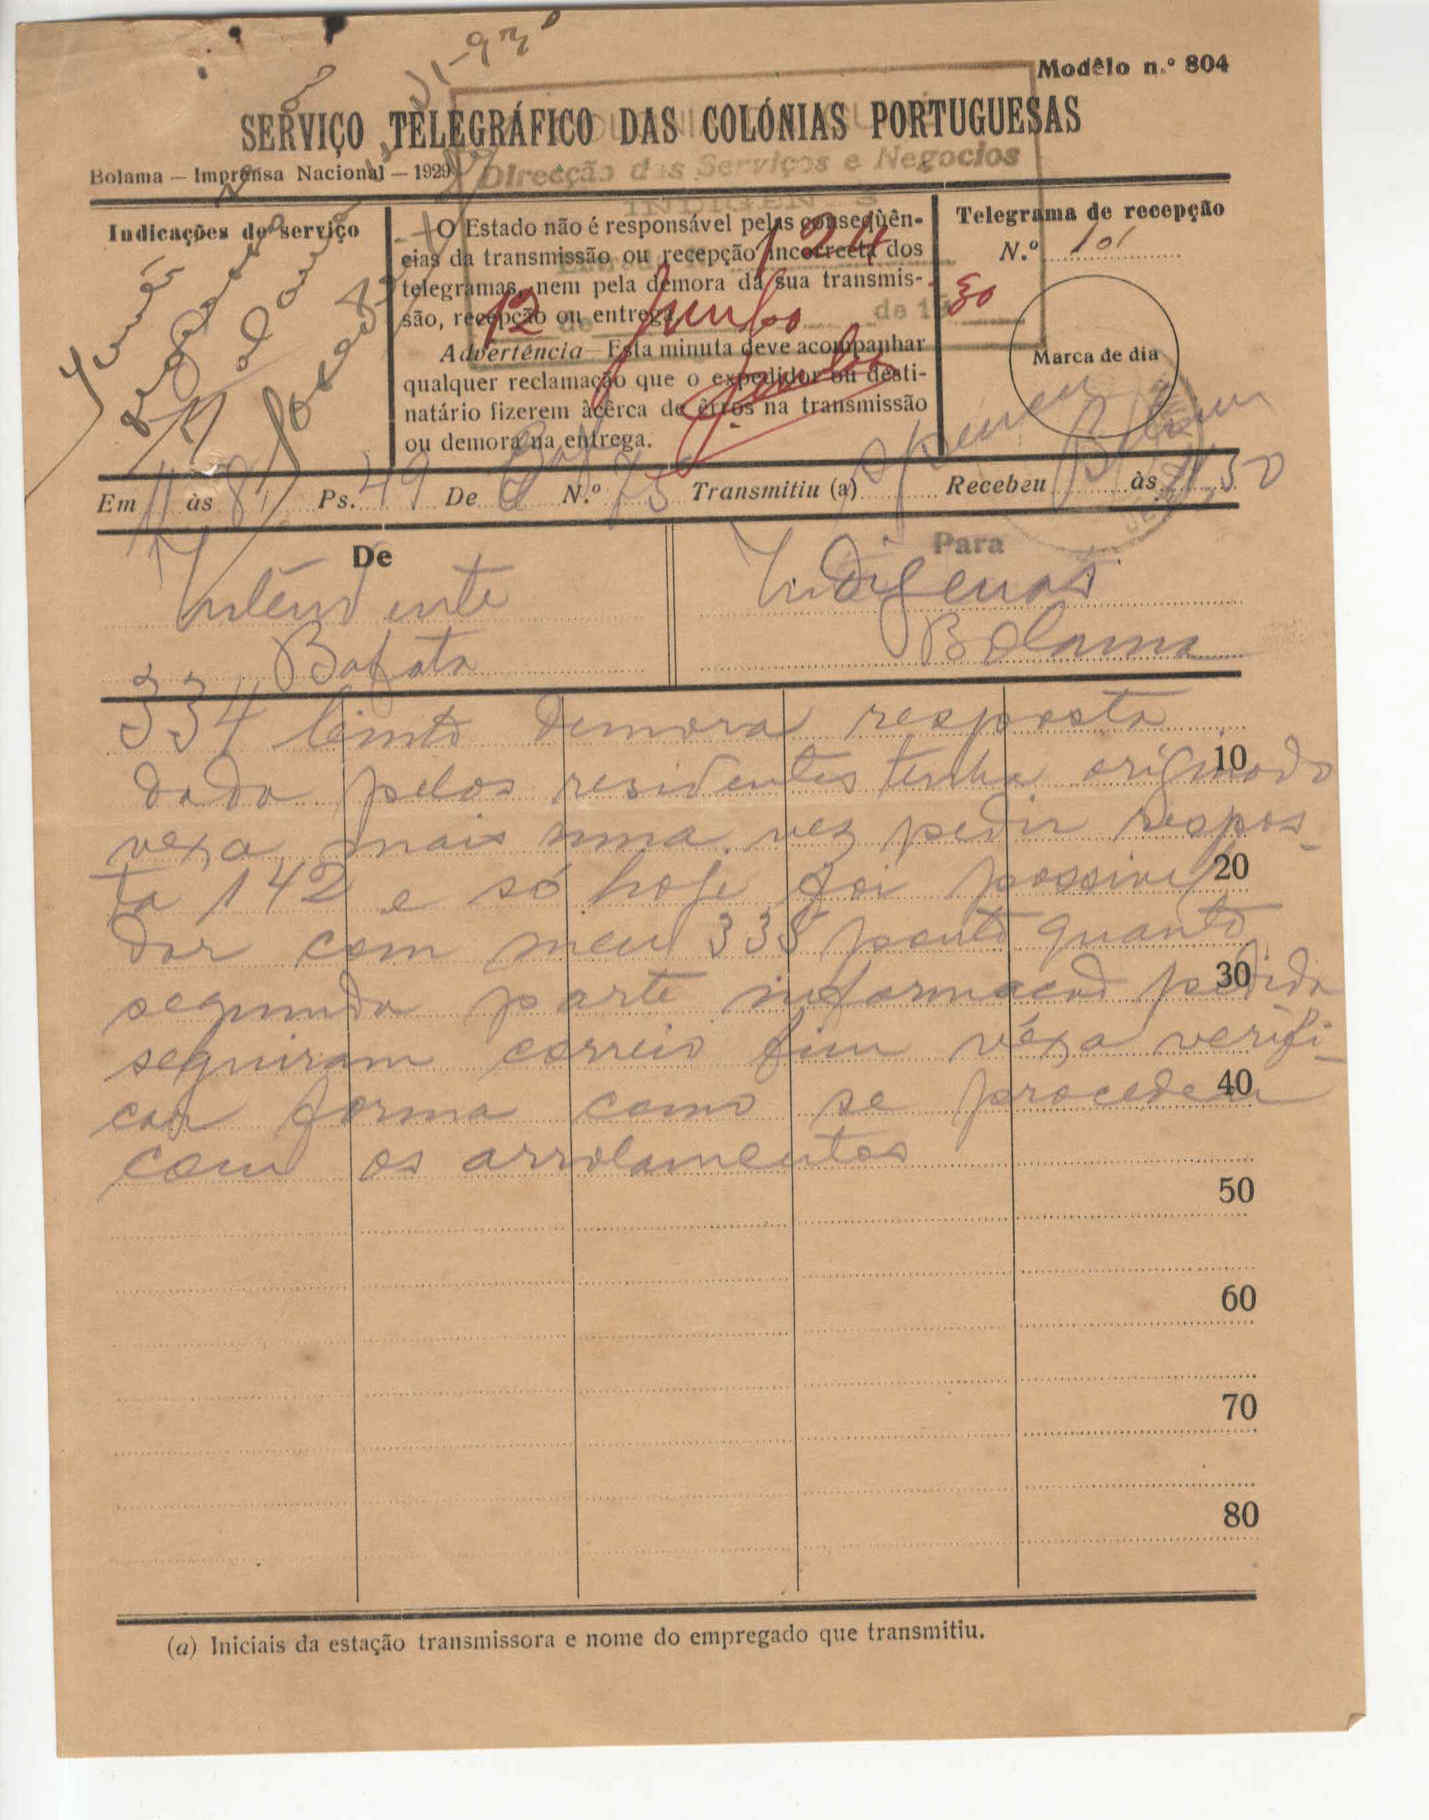 Modêlo n.º 804
SERVIÇO TELEGRÁFICO DAS COLÓNIAS PORTUGUESAS
Bolama — Imprensa Nacional — 1929
Direcção dos Serviços e Negocios
INDIGENAS
Indicações de serviço
O Estado não é responsável pelas conseqüên-
cias da transmissão ou recepção incorrecta dos
telegramas, nem pela demora da sua transmis-
são, recepção ou entrega.
Advertência — Esta minuta deve acompanhar
qualquer reclamação que o expedidor ou desti-
natário fizerem àcêrca de êrros na transmissão
ou demora na entrega.
124
12 de Junho de 1930
Telegrama de recepção
N.º 101
Marca de dia
Em 11 às 8 Ps. 49 De Baf N.º 75 Transmitiu (a) Recebeu às 11,50
De
Intendente
Bafata
Para
Indigenas
Bolama
334 demora resposta
dada pelos residentes tenha originado 10
vexa mais uma vez pedir respos-
ta 142 e só hoje foi possivel 20
dar com meu 335 ponto quanto
segunda parte informacao pedida 30
seguiram correio fim véxa verifi-
car forma como se procedeu 40
com os arrolamentos
50
60
70
80
(a) Iniciais da estação transmissora e nome do empregado que transmitiu.